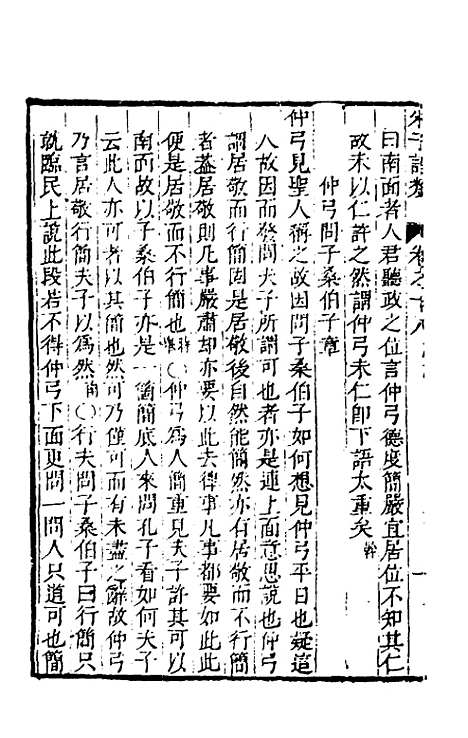 朱子語類
曰南面者人君聽政之位言仲弓德度簡嚴宜居位不知其仁
故未以仁許之然謂仲弓未仁即下語太重矣 榦
仲弓問子桑伯子章
仲弓見聖人稱之故因問子桑伯子如何想見仲弓平日也疑這
人故因而發問夫子所謂可也者亦是連上面意思說也仲弓
謂居敬而行簡固是居敬後自然能簡然亦有居敬而不行簡
者蓋居敬則凡事嚴肅却亦要以此去律事凡事都要如此此
便是居敬而不行簡也 ○仲弓為人簡重見夫子許其可以
南面故以子桑伯子亦是一箇簡底人來問孔子看如何夫子
云此人亦可者以其簡也然可乃僅可而有未盡之辭故仲弓
乃言居敬行簡夫子以為然 ○行夫問子桑伯子曰行簡只
就臨民上說此段若不得仲弓下面更問一問人只道可也簡